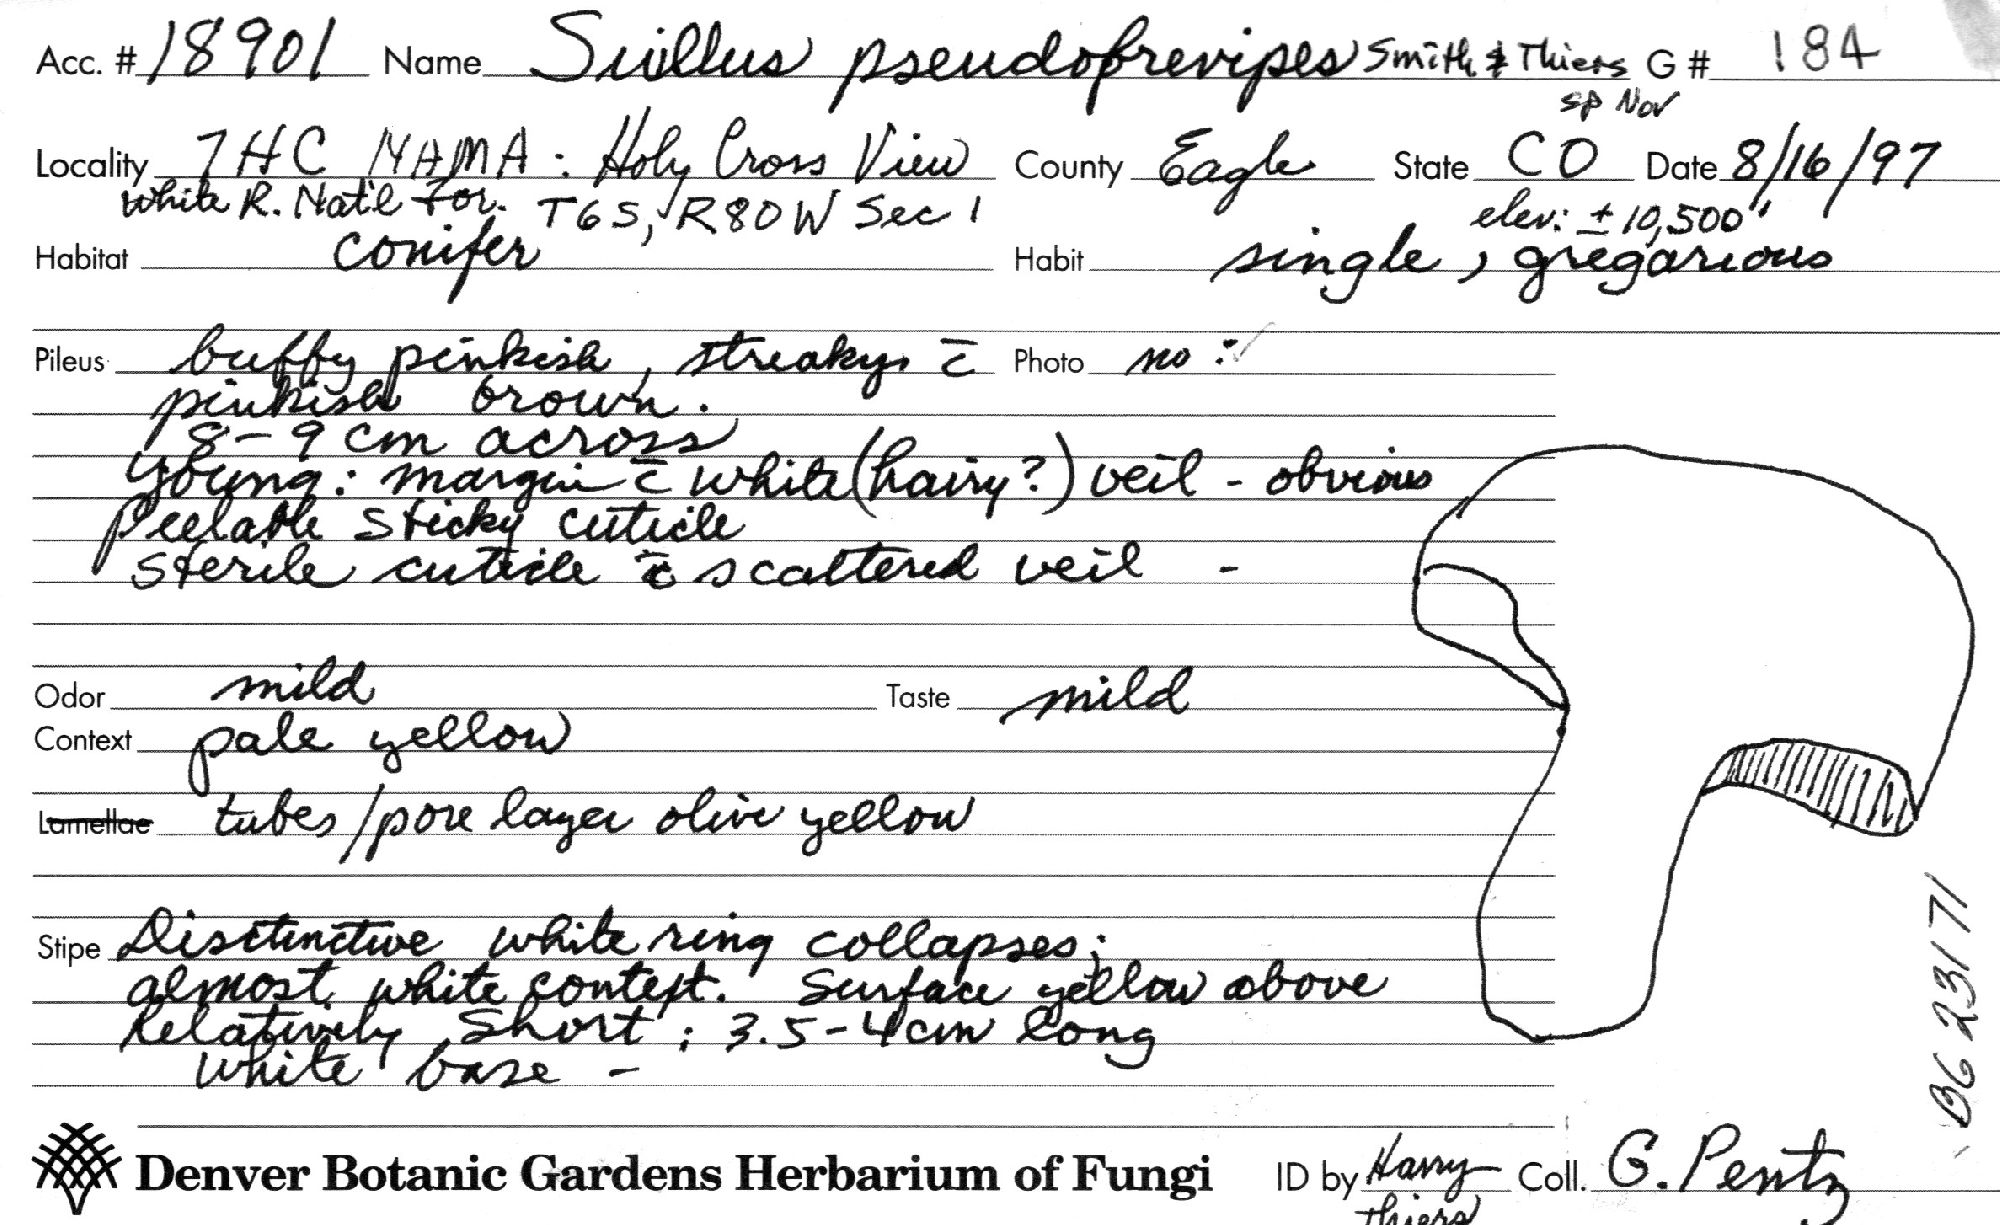 Acc. # 18901 Name Suillus pseudobrevipes Smith & Thiers G# 184
sp Nov
Locality 7HC NAMA : Holy Cross View County Eagle State CO Date 8/16/97
White R. Nat'l For. T6S, R80W Sec 1 elev: ± 10,500"
Habitat conifer Habit single, gregarious
Pileus buffy pinkish, streaky c̄ Photo no :✓
pinkish brown.
8-9 cm across
Young: margin c̄ white (hairy?) veil - obvious
Peelable sticky cuticle
sterile cuticle c̄ scattered veil -
Odor mild Taste mild
Context pale yellow
Lamellae tubes/pore layer olive yellow
Stipe Disctinctive white ring collapses;
almost white context. Surface yellow above
Relatively short; 3.5-4cm long
white base -
BG 23171
Denver Botanic Gardens Herbarium of Fungi ID by Harry Thiers Coll. G. Pentz